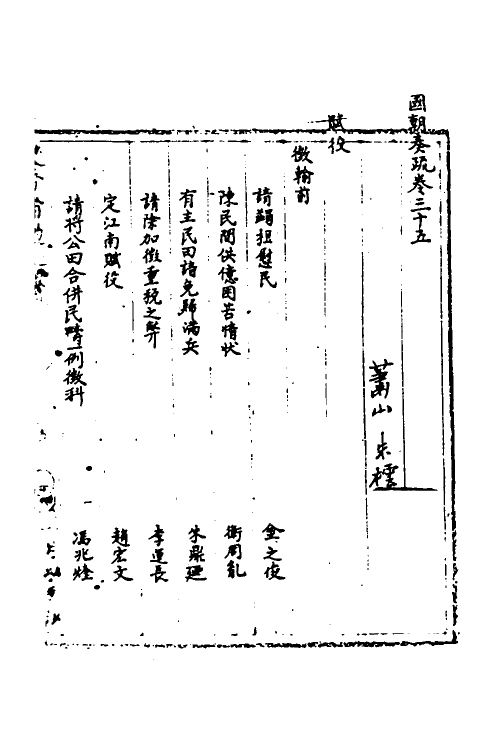 國朝奏疏卷三十五
蕭山 朱橒
賦役
徵輸前
請蠲担慰民 金之俊
陳民間供億困苦情狀 衛周胤
有主民田請免歸滿兵 朱鼎延
請除加徵重稅之弊 李運長
定江南賦役 趙宏文
請將公田合併民疇一例徵科 馮兆煃